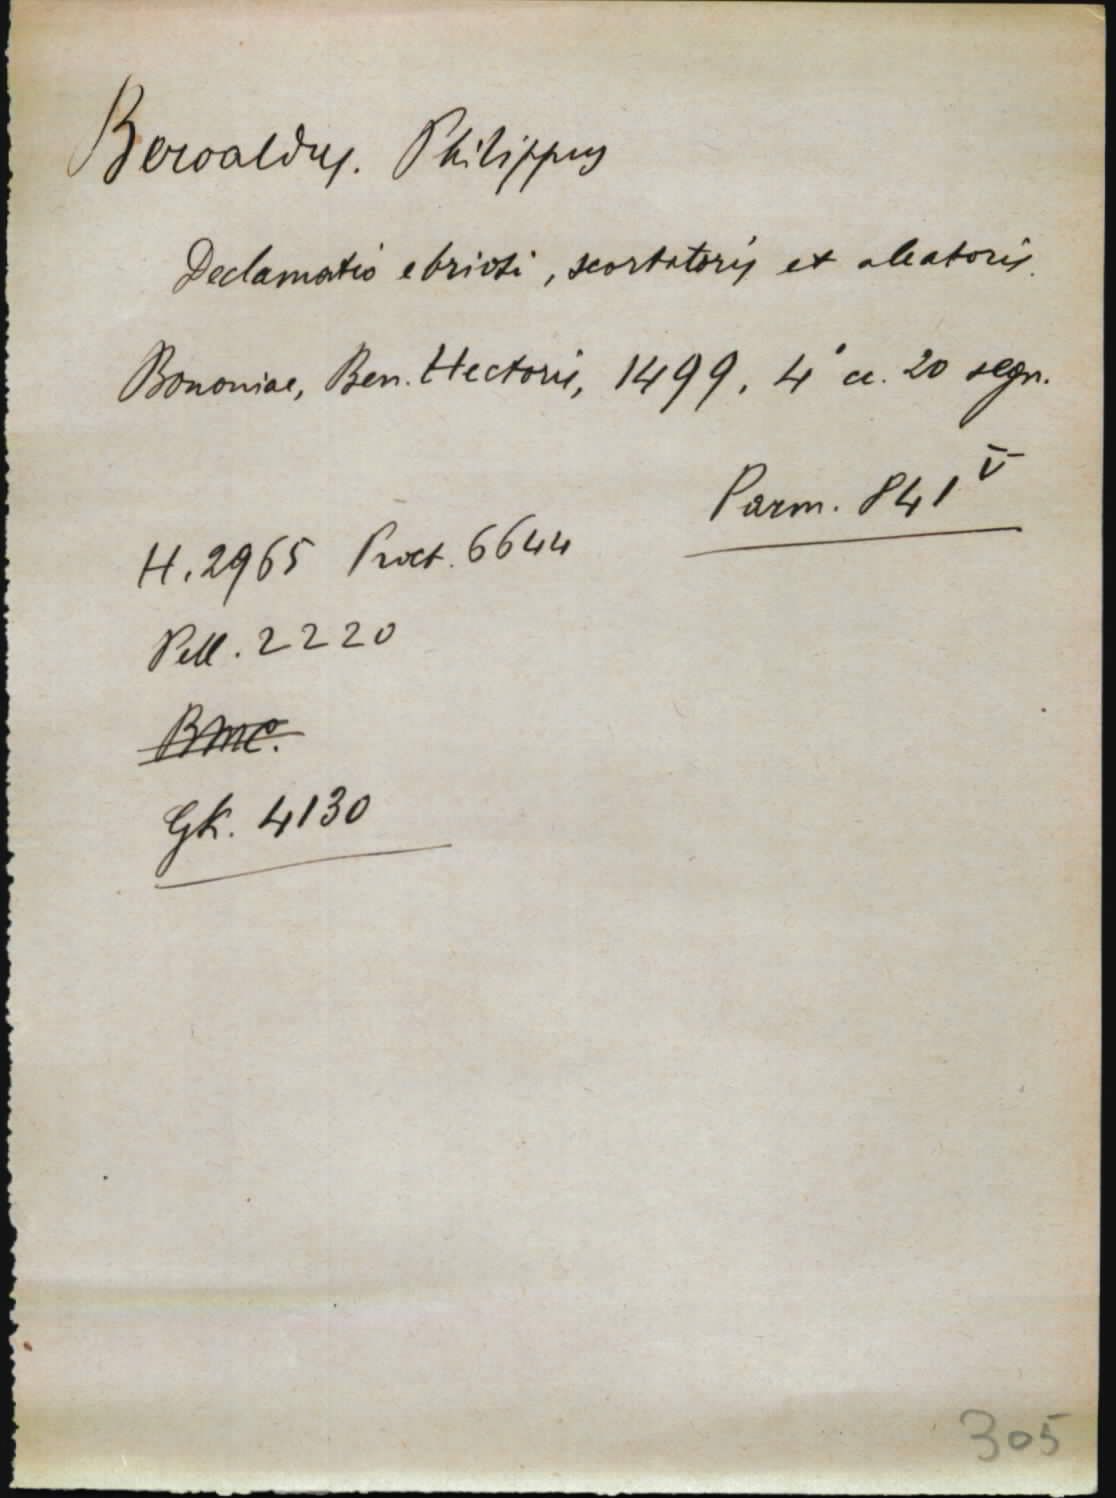 Beroaldus. Philippus
Declamatio ebriosi, scortatoris et aleatoris.
Bononiae, Ben. Hectoris, 1499, 4° cc. 20 segn.
Parm. 841 V
H. 2965 Proct. 6644
Pell. 2220
BMC.
GK. 4130
305